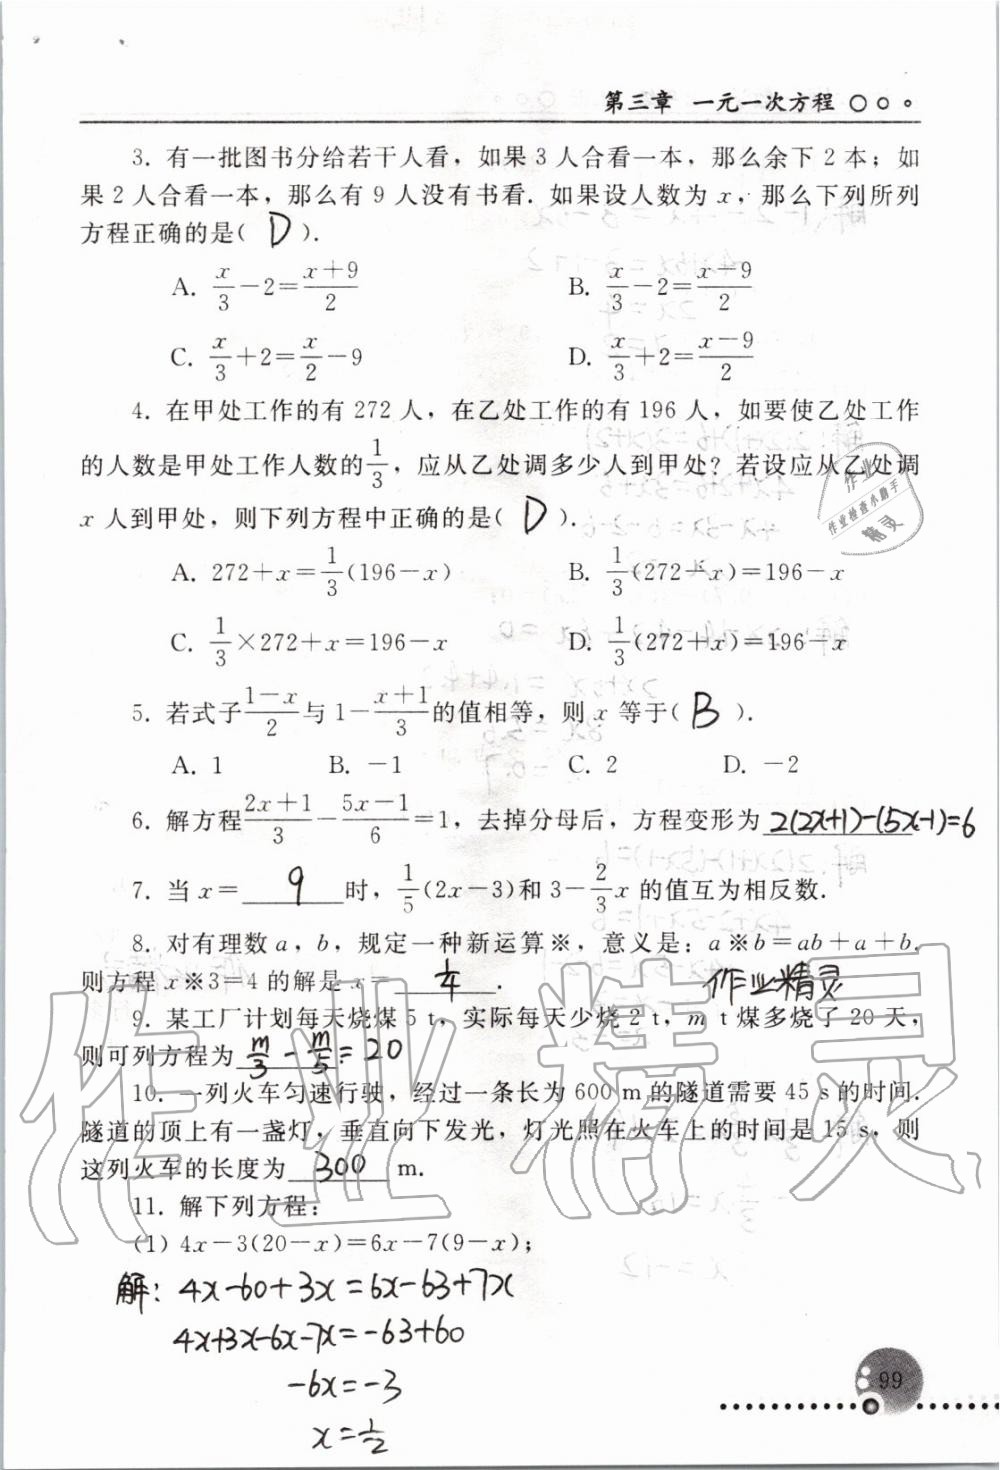 第三章 一元一次方程
3. 有一批图书分给若干人看，如果 3 人合看一本，那么余下 2 本；如
果 2 人合看一本，那么有 9 人没有书看. 如果设人数为 x，那么下列所列
方程正确的是( D ).
A. x/3－2＝(x＋9)/2 B. x/3－2＝(x－9)/2
C. x/3＋2＝x/2－9 D. x/3＋2＝(x－9)/2
4. 在甲处工作的有 272 人，在乙处工作的有 196 人，如要使乙处工作
的人数是甲处工作人数的1/3，应从乙处调多少人到甲处？若设应从乙处调
x 人到甲处，则下列方程中正确的是( D ).
A. 272＋x＝1/3(196－x) B. 1/3(272－x)＝196－x
C. 1/3×272＋x＝196－x D. 1/3(272＋x)＝196－x
5. 若式子(1－x)/2与 1－(x＋1)/3的值相等，则 x 等于( B ).
A. 1 B. －1 C. 2 D. －2
6. 解方程(2x＋1)/3－(5x－1)/6＝1，去掉分母后，方程变形为 2(2x+1)-(5x-1)=6
7. 当 x＝ 9 时，1/5(2x－3)和 3－2/3x 的值互为相反数.
8. 对有理数 a，b，规定一种新运算※，意义是：a※b＝ab＋a＋b.
则方程 x※3＝4 的解是 x＝ 1/4 .
作业精灵
9. 某工厂计划每天烧煤 5 t，实际每天少烧 2 t，m t 煤多烧了 20 天，
则可列方程为 m/3 - m/5 = 20
10. 一列火车匀速行驶，经过一条长为 600 m 的隧道需要 45 s 的时间.
隧道的顶上有一盏灯，垂直向下发光，灯光照在火车上的时间是 15 s，则
这列火车的长度为 300 m.
11. 解下列方程：
(1) 4x－3(20－x)＝6x－7(9－x)；
解: 4x-60+3x=6x-63+7x
4x+3x-6x-7x=-63+60
-6x=-3
x=1/2
99
作业
作业检查小助手
精灵
作业精灵